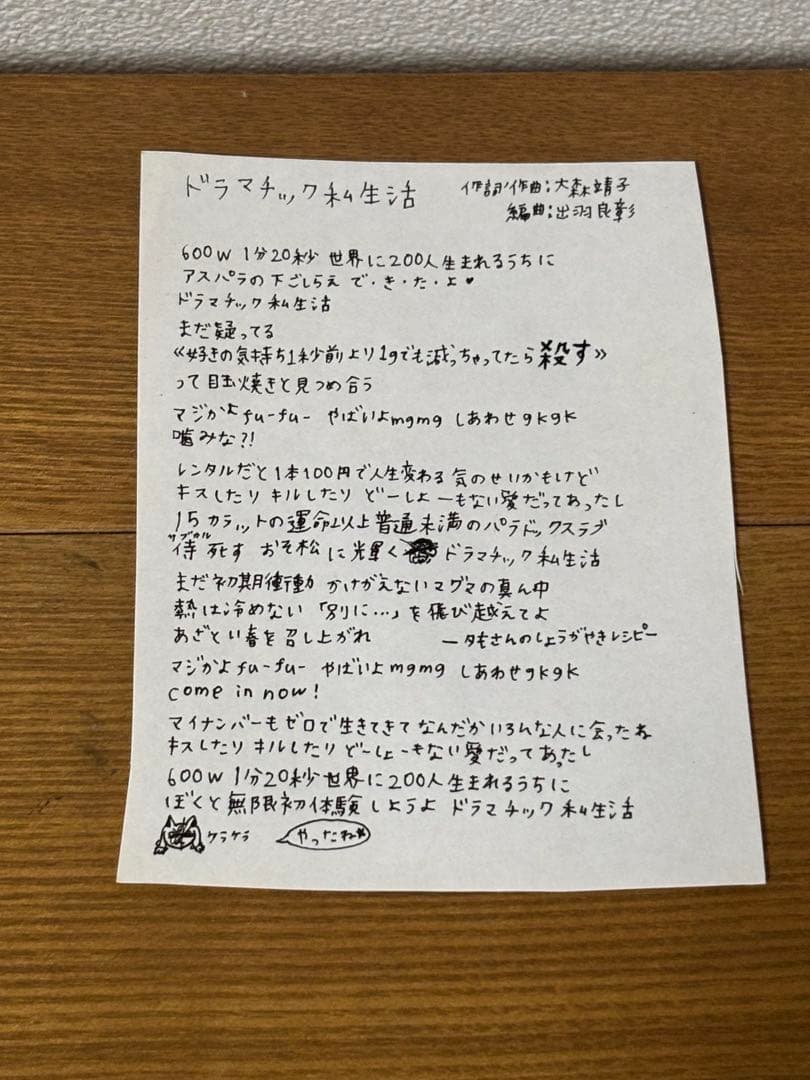 ドラマチック私生活
作詞/作曲:大森靖子
編曲:出羽良彰
600W 1分20秒 世界に200人生まれるうちに
アスパラの下ごしらえ で・き・た・よ♥
ドラマチック私生活
まだ疑ってる
《好きの気持ち1秒前より1gでも減っちゃってたら殺す》
って目玉焼きと見つめ合う
マジかよfu-fu- やばいよmgmg しあわせgkgk
噛みな?!
レンタルだと1本100円で人生変わる 気のせいかもけど
キスしたり キルしたり どーしよーもない愛だってあったし
15カラットの運命以上普通未満のパラドックスラブ
サブカル
侍 死す おそ松 に光輝く ドラマチック私生活
まだ初期衝動 かけがえないマグマの真ん中
熱は冷めない 「別に…」を飛び越えてよ
あざとい春を召し上がれ ータモさんのしょうがやきレシピー
マジかよfu-fu- やばいよmgmg しあわせgkgk
come in now!
マイナンバーもゼロで生きてきて なんだかいろんな人に会ったね
キスしたり キルしたり どーしよーもない愛だってあったし
600W 1分20秒 世界に200人生まれるうちに
ぼくと無限初体験 しようよ ドラマチック私生活
ケラケラ やったね☆